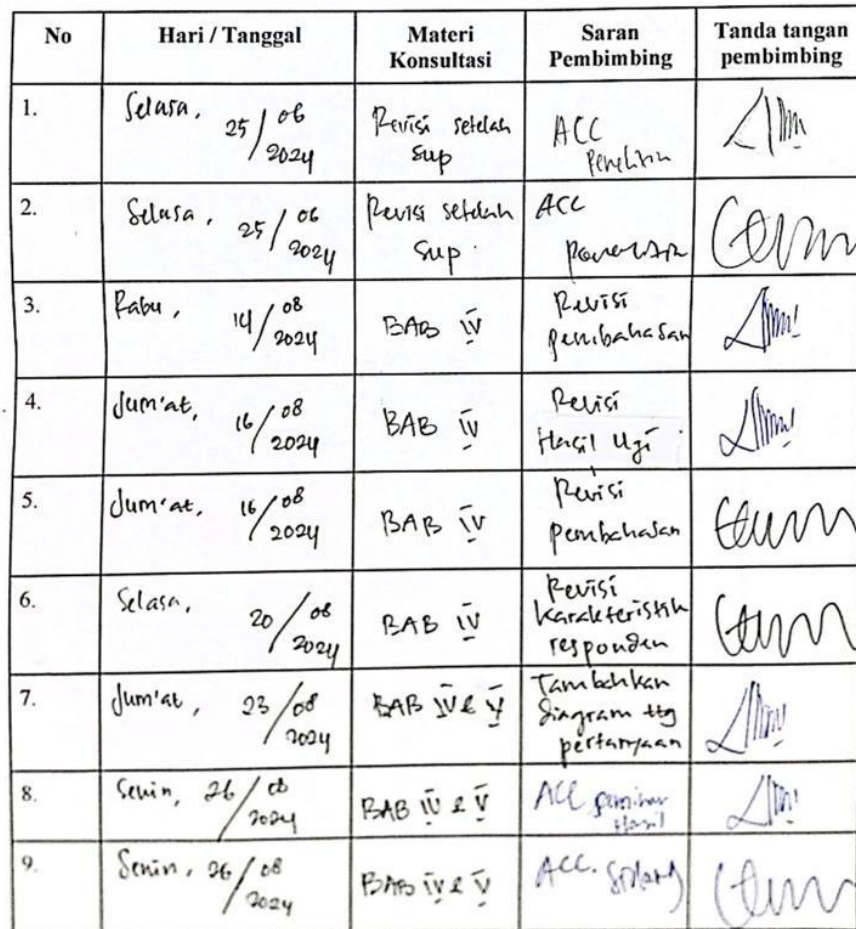 No Hari / Tanggal Materi Konsultasi Saran Pembimbing Tanda tangan pembimbing
1. Selasa, 25/06 2024 Revisi setelah Sup ACC Penelitian
2. Selasa, 25/06 2024 Revisi setelah Sup. ACC
3. Rabu, 14/08 2024 BAB IV Revisi pembahasan
4. Jum'at, 16/08 2024 BAB IV Revisi Hasil Uji
5. Jum'at, 16/08 2024 BAB IV Revisi Pembahasan
6. Selasa, 20/08 2024 BAB IV Revisi karakteristik responden
7. Jum'at, 23/08 2024 BAB IV & V Tambahkan diagram ttg pertanyaan
8. Senin, 26/08 2024 BAB IV & V ACC seminar Hasil
9. Senin, 26/08 2024 BAB IV & V ACC. Sidang